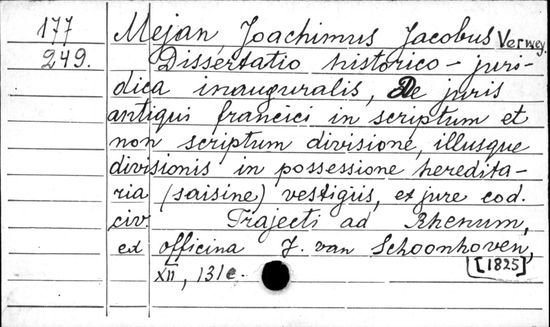 177 Mejan, Joachimus Jacobus Verwey.
249. Dissertatio historico-juri-
dica inauguralis, De juris
antiqui francici in scriptum et
non scriptum divisione, illusque
divisionis in possessione heredita-
ria (saisine) vestigiis, ex jure cod.
civ. Trajecti ad Rhenum,
ex officina J. van Schoonhoven,
[1825]
XII, 131 c.